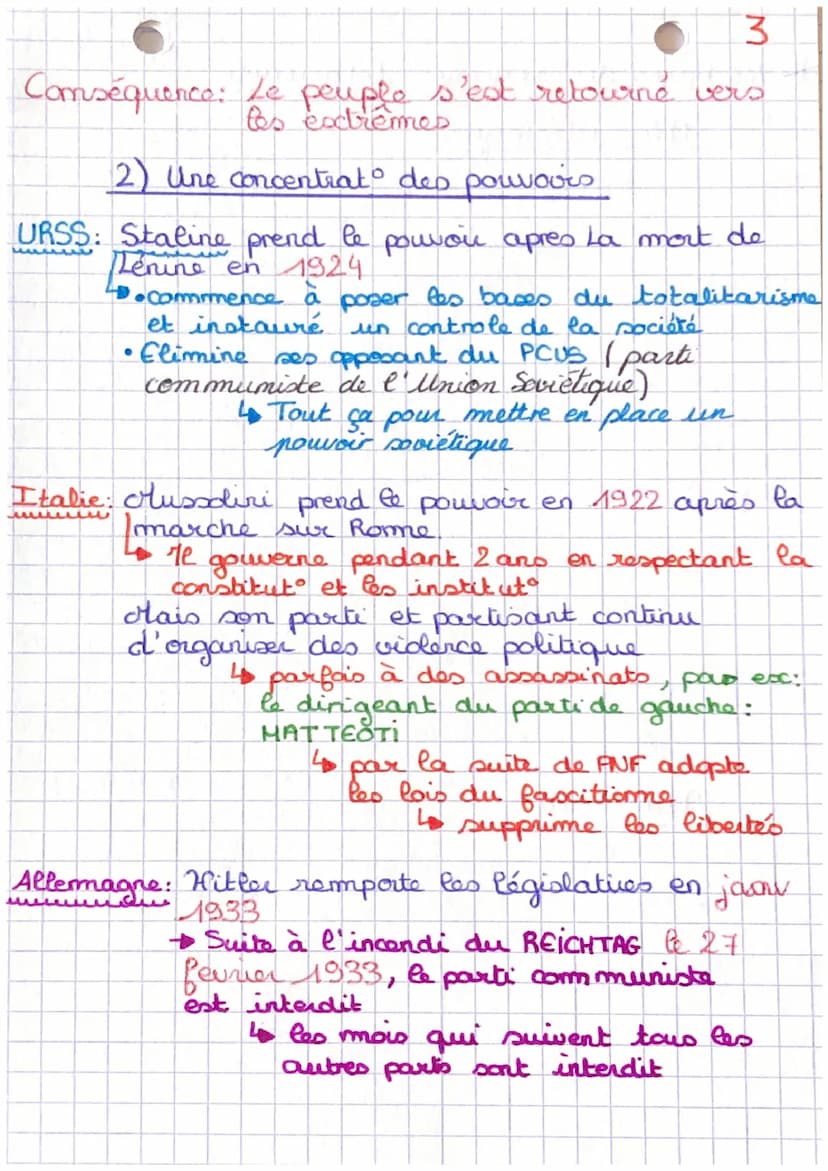 3
Conséquence: Le peuple s'est retourné vers
les extrêmes
2) Une concentrat° des pouvoirs
URSS: Staline prend le pouvoir apres La mort de
Lénine en 1924
•commence à poser les bases du totalitarisme
et instauré un controle de la société
• Elimine ses opposant du PCUS (parti
communiste de l'Union Soviétique)
↳ Tout ça pour mettre en place un
pouvoir soviétique
Italie: Mussolini prend le pouvoir en 1922 après la
marche sur Rome.
↳ Il gouverne pendant 2 ans en respectant la
constitut° et les institut°
Mais son parti et partisant continu
d'organiser des violence politique
↳ parfois à des assassinats, par ex:
le dirigeant du parti de gauche:
MATTEOTI
↳ par la suite de PNF adopte
les lois du fascitionne
↳ supprime les libertés
Allemagne: Hitler remporte les législatives en janv
1933
→ Suite à l'incendi du REICHTAG le 27
fevrier 1933, le parti communiste
est interdit
↳ les mois qui suivent tous les
autres partis sont interdit